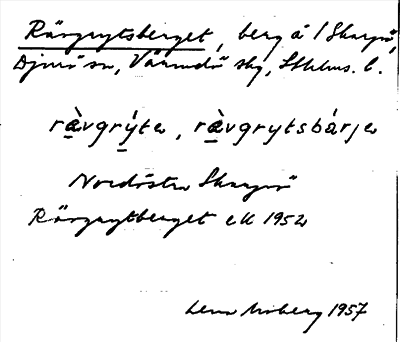 Rävgrytsberget, berg å / Skarpö,
Djurö sn, Värmdö skg, Sthlms. l.
ràvgrýtər, ràvgrytsbárjə
Nordöstra Skarpö
Rävgrytberget ek 1952
Lena Moberg 1957